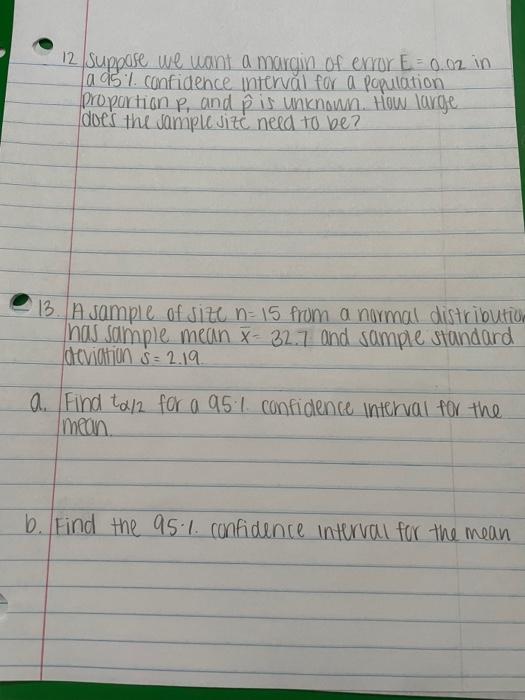 12 Suppose we want a margin of error E = 0.02 in
a 95%. confidence interval for a population
proportion p, and p̂ is unknown. How large
does the sample size need to be?
13. A sample of size n = 15 from a normal distribution
has sample mean x̄ = 32.7 and sample standard
deviation s = 2.19.
a. Find tα/2 for a 95%. confidence interval for the
mean.
b. Find the 95%. confidence interval for the mean